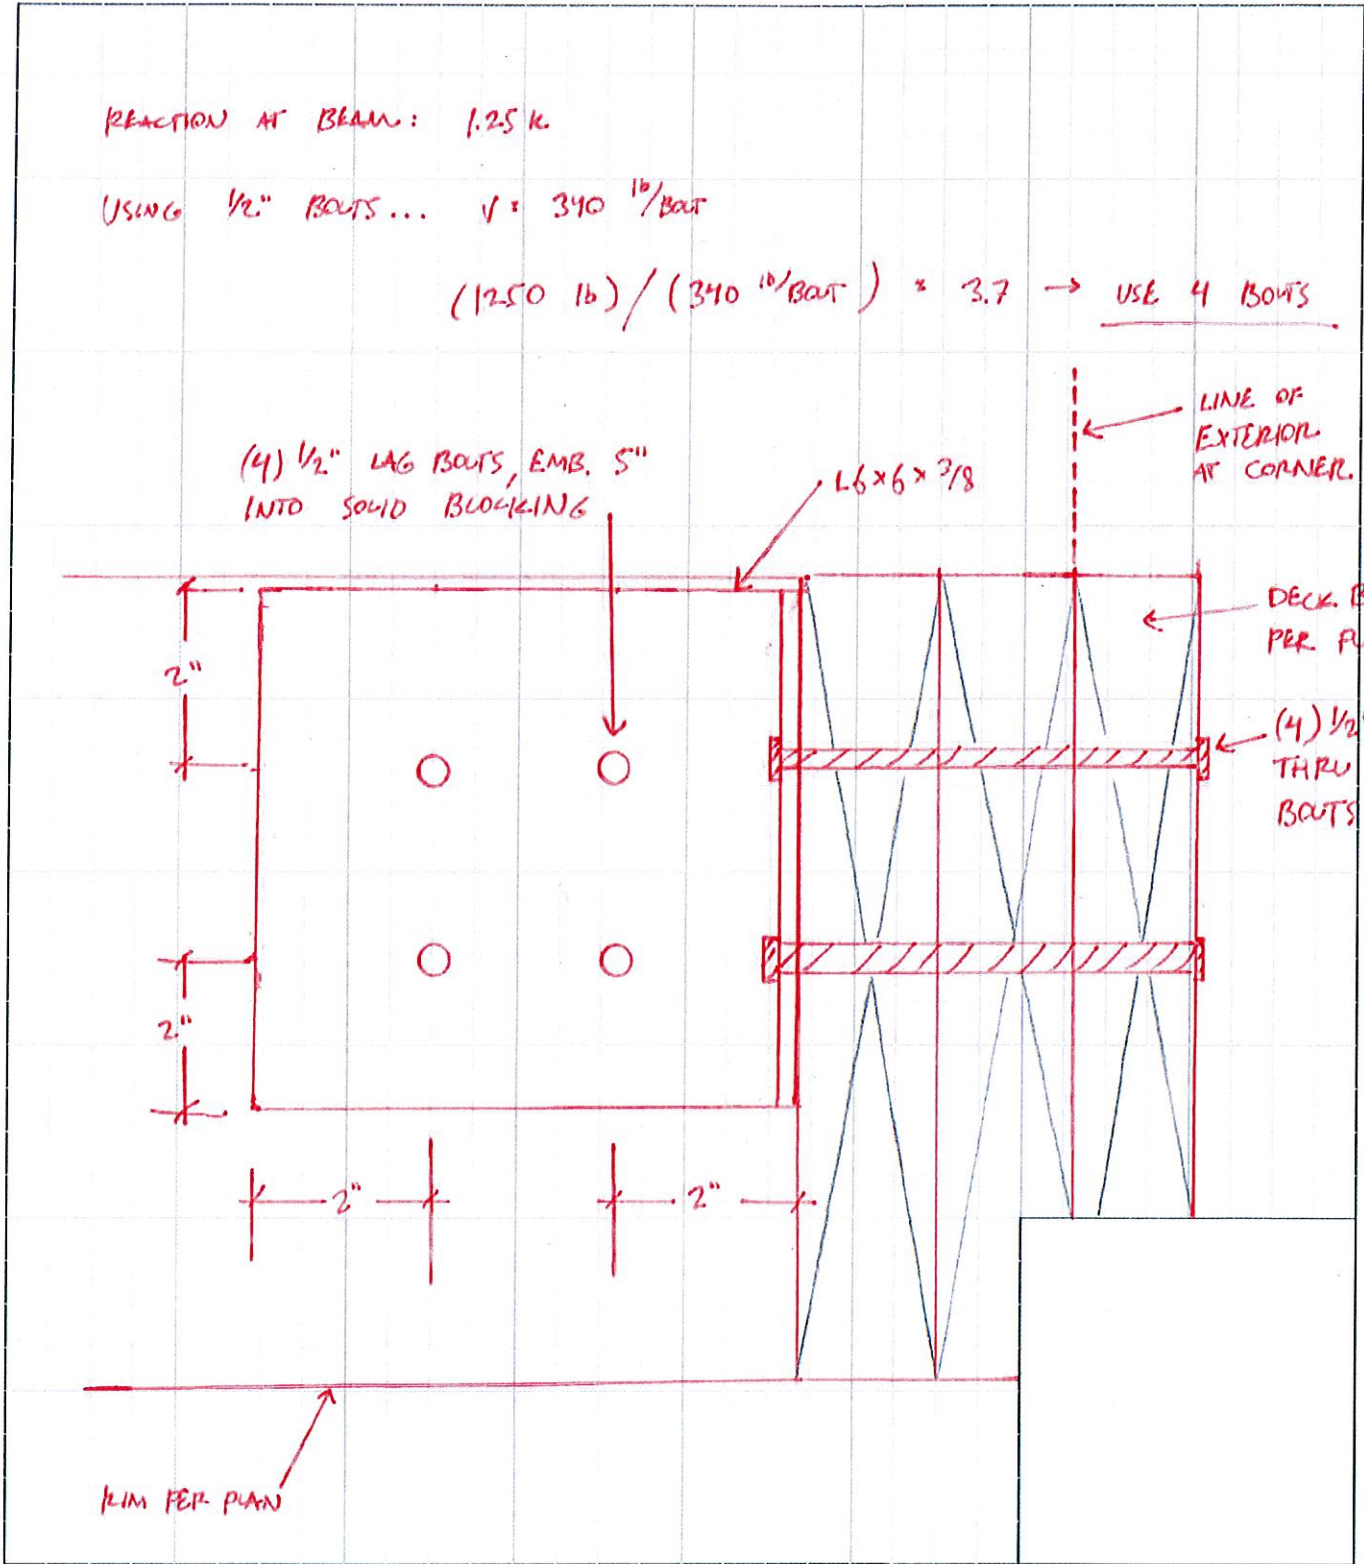 REACTION AT BEAM: 1.25 K
USING 1/2" BOLTS... V = 340 lb/BOLT
(1250 lb)/(340 lb/BOLT) = 3.7 → USE 4 BOLTS
LINE OF
EXTERIOR
AT CORNER.
(4) 1/2" LAG BOLTS, EMB. 5"
INTO SOLID BLOCKING
L6x6x3/8
DECK
PER
2"
(4) 1/2
THRU
BOLTS
2"
2"
2"
RIM PER PLAN